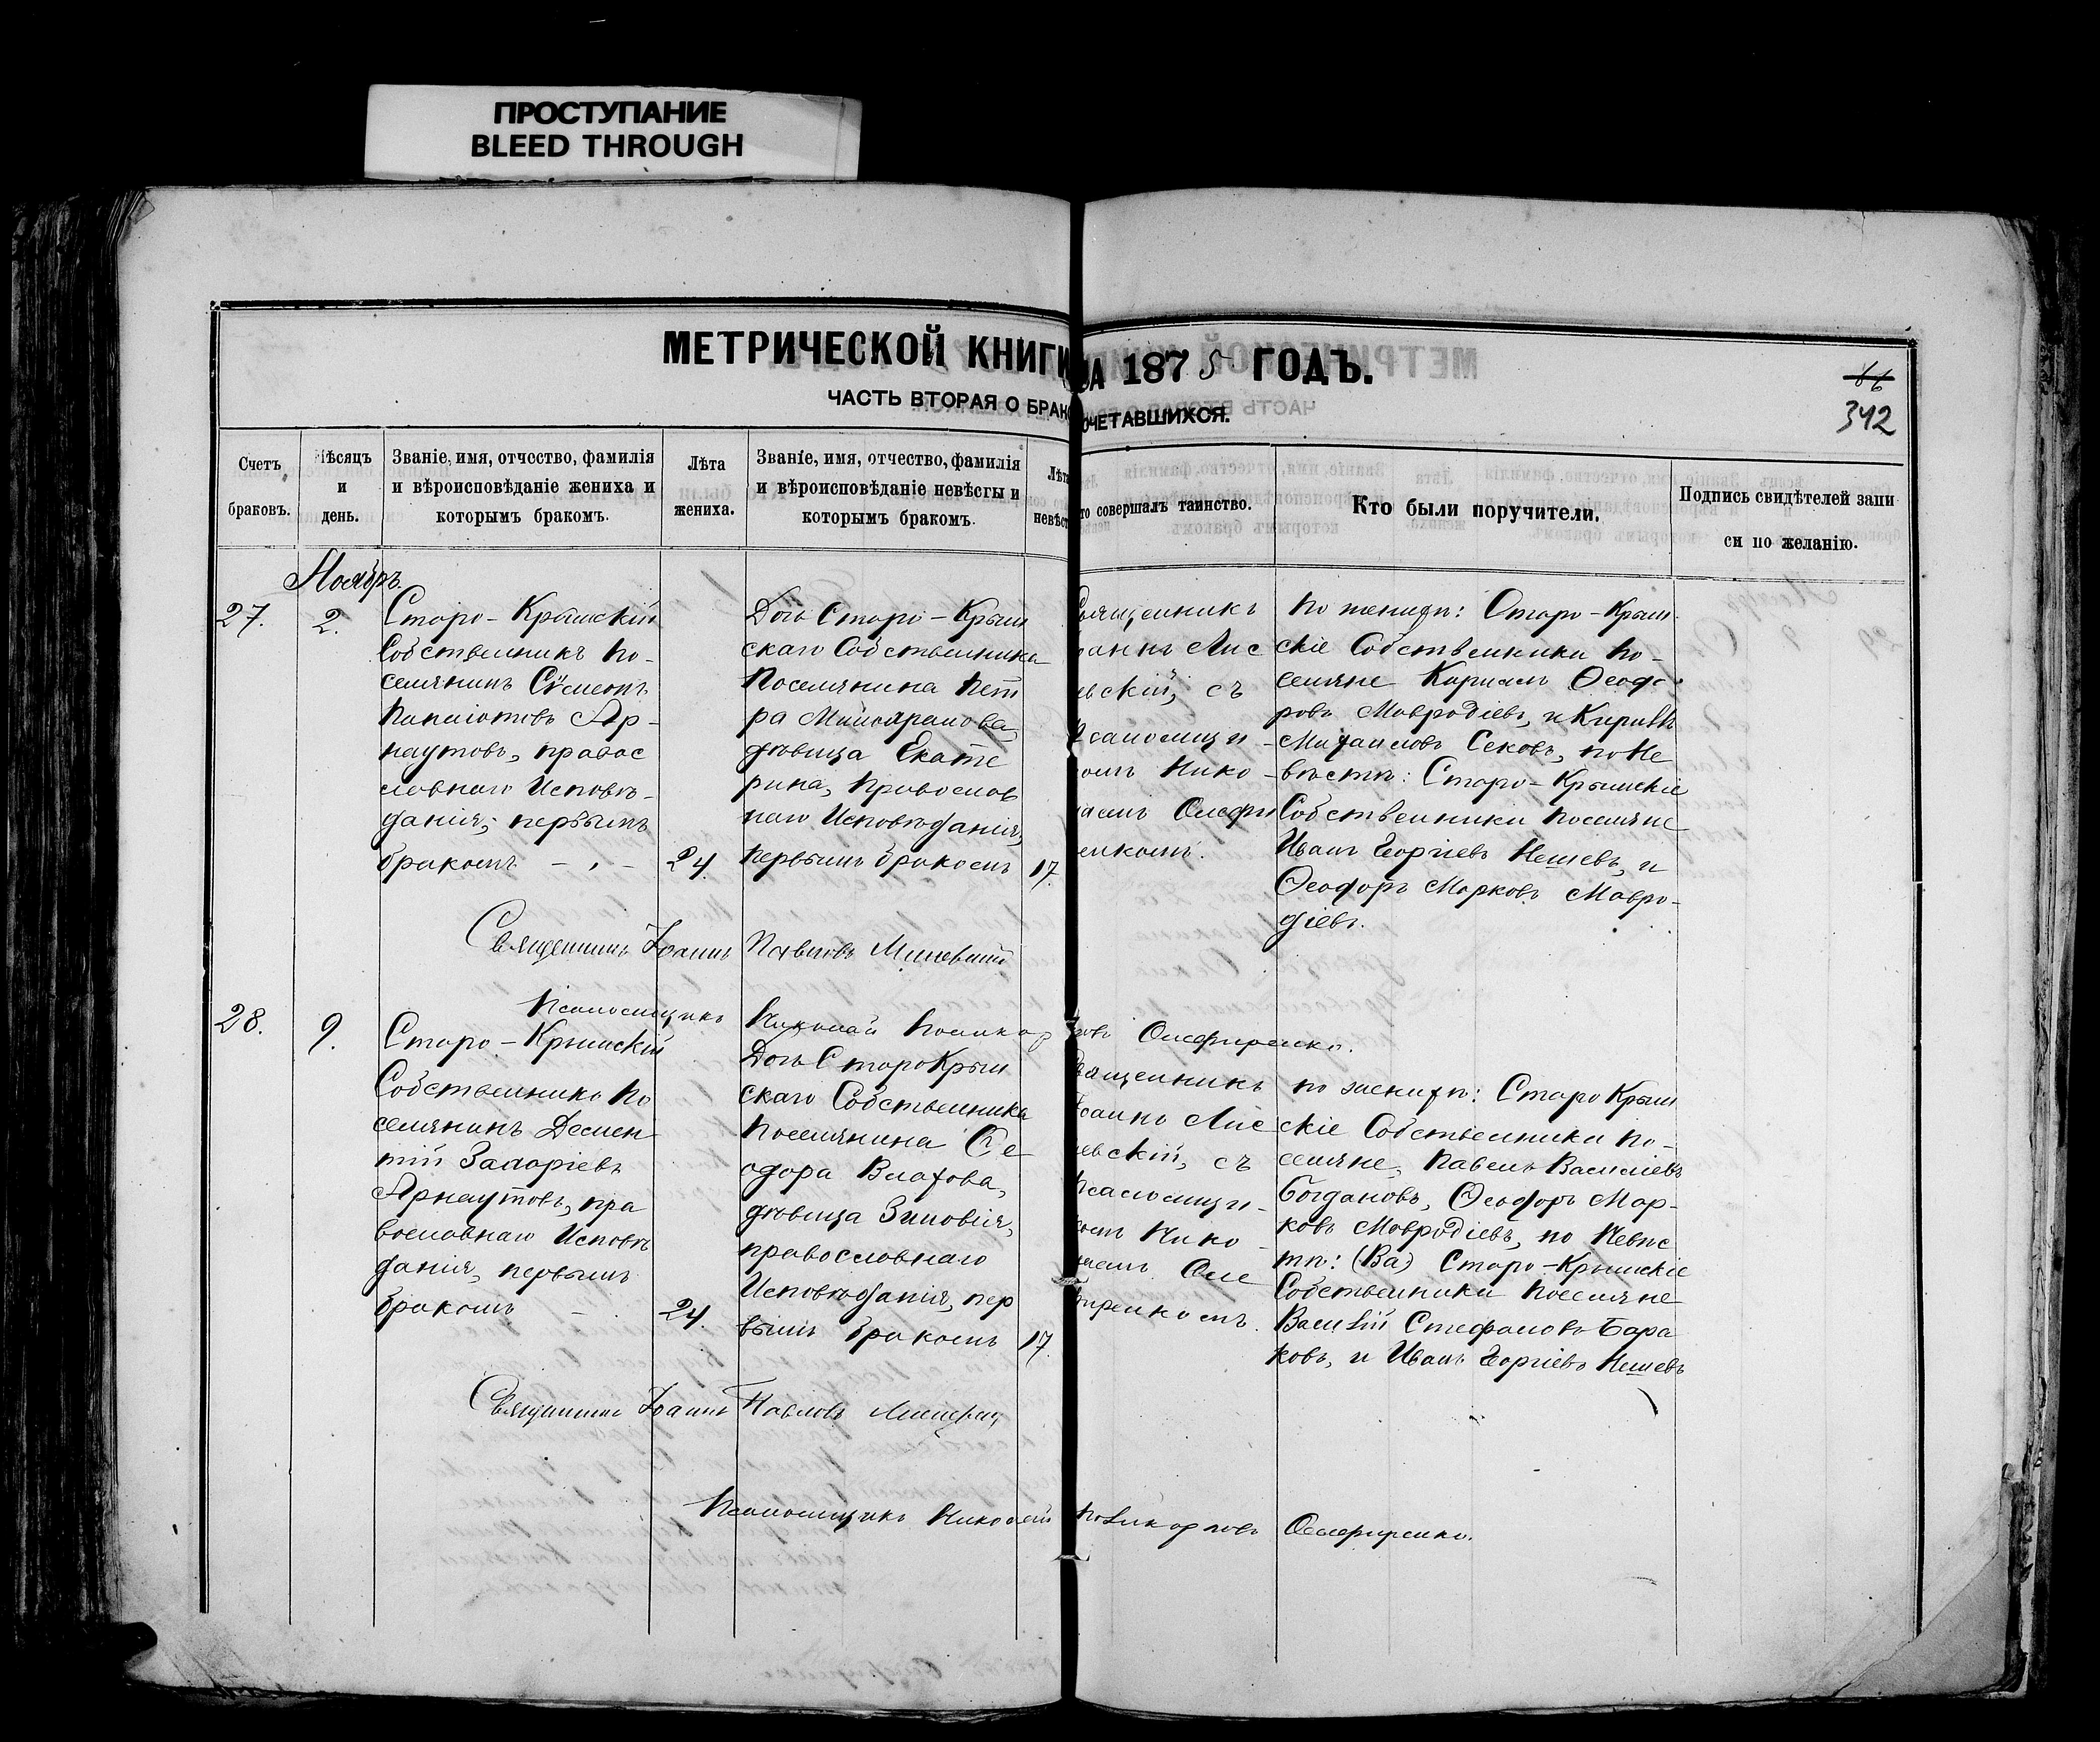 ПРОСТУПАНИЕ
BLEED THROUGH
МЕТРИЧЕСКОЙ КНИГИ НА 1875 ГОДЪ.
ЧАСТЬ ВТОРАЯ О БРАКОСОЧЕТАВШИХСЯ.
342
Счетъ браковъ.
Мѣсяцъ и день.
Званіе, имя, отчество, фамилія
и вѣроисповѣданіе жениха и
которымъ бракомъ.
Лѣта
жениха.
Званіе, имя, отчество, фамилія
и вѣроисповѣданіе невѣсты и
которымъ бракомъ.
Лѣта
невѣст
то совершалъ таинство.
Кто были поручители.
Подпись свидѣтелей запи
си по желанію.
Ноябрь
27.
2.
Старо-Крымскій
Собственникъ По-
селянинъ Сѵмеонъ
Панаіотовъ Ар-
наутовъ, правос
лавнаго Исповѣ-
данія, первымъ
бракомъ
24.
Дочь Старо-Крым
скаго Собственника
Поселянина Пет
ра
дѣвица Екате
рина, Православ
наго Исповѣданія,
первымъ бракомъ
17.
Священникъ
Іоаннъ Лис
невскій, съ
Псаломщи-
комъ Нико-
лаемъ Олефи
ренкомъ.
По женихѣ: Старо-Крым
скіе Собственники По-
селяне Кириллъ Ѳеодо
ровъ Мавродіевъ, и Кириллъ
Михаиловъ Сековъ, по Не
вѣстѣ: Старо-Крымскіе
Собственники Поселяне
Иванъ Георгіевъ Нешевъ, и
Ѳеодоръ Марковъ Мавро-
діевъ.
Священникъ Іоаннъ Павловъ
Псаломщикъ Николай Поликарповъ Олефиренко.
28.
9.
Старо-Крымскій
Собственникъ По
селянинъ Демен
тій Захаріевъ
Арнаутовъ, пра
вославнаго Исповѣ
данія, первымъ
бракомъ
24.
Дочь СтароКрым
скаго Собственника
Поселянина Ѳе
одора Влахова,
дѣвица Зиновія,
православнаго
Исповѣданія, пер
вымъ бракомъ
17.
Священникъ
Іоаннъ Лис
невскій, съ
Псаломщи-
комъ Нико-
лаемъ Оле
фиренкомъ.
по женихѣ: СтароКрым
скіе Собственники По-
селяне, Павелъ Василіевъ
Богдановъ, Ѳеодоръ Мар-
ковъ Мавродіевъ, по Невѣс
тѣ: (Ва) Старо-Крымскіе
Собственники Поселяне
Василій Стефановъ Бара
ковъ, и Иванъ Георгіевъ Нешевъ
Священникъ Іоаннъ Павловъ
Псаломщикъ Николай Поликарповъ Олефиренко.